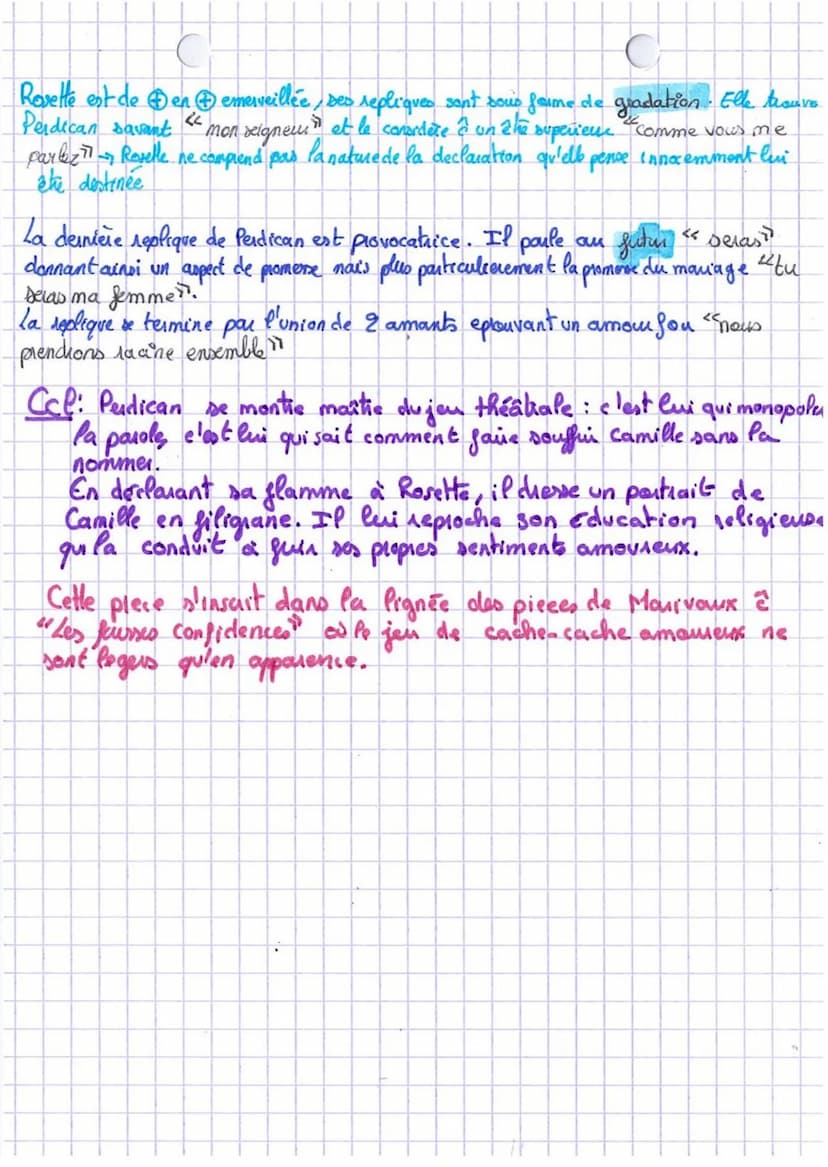 Rosette est de ⊕ en ⊕ emerveillée, ses repliques sont sous forme de gradation. Elle trouve
Perdican savant « mon seigneur » et le considère ĉ un être superieur "comme vous me
parlez" → Rosette ne comprend pas la nature de la declaration qu'elle pense innocemment lui
être destinée
La dernière replique de Perdican est provocatrice. Il parle au futur « seras »
donnant ainsi un aspect de promesse mais plus particulierement la promesse du mariage "tu
seras ma femme".
La replique se termine par l'union de 2 amants eprouvant un amour fou « nous
prendrons racine ensemble »
Ccl: Perdican se montre maître du jeu théâtrale : c'est lui qui monopole
la parole, c'est lui qui sait comment faire souffrir Camille sans la
nommer.
En declarant sa flamme à Rosette, il dresse un portrait de
Camille en filigrane. Il lui reproche son education religieuse
qui la conduit a fuir ses propres sentiments amoureux.
Cette piece s'inscrit dans la lignée des pieces de Marivaux ĉ
"Les fausses confidences" où le jeu de cache-cache amoureux ne
sont legers qu'en apparence.